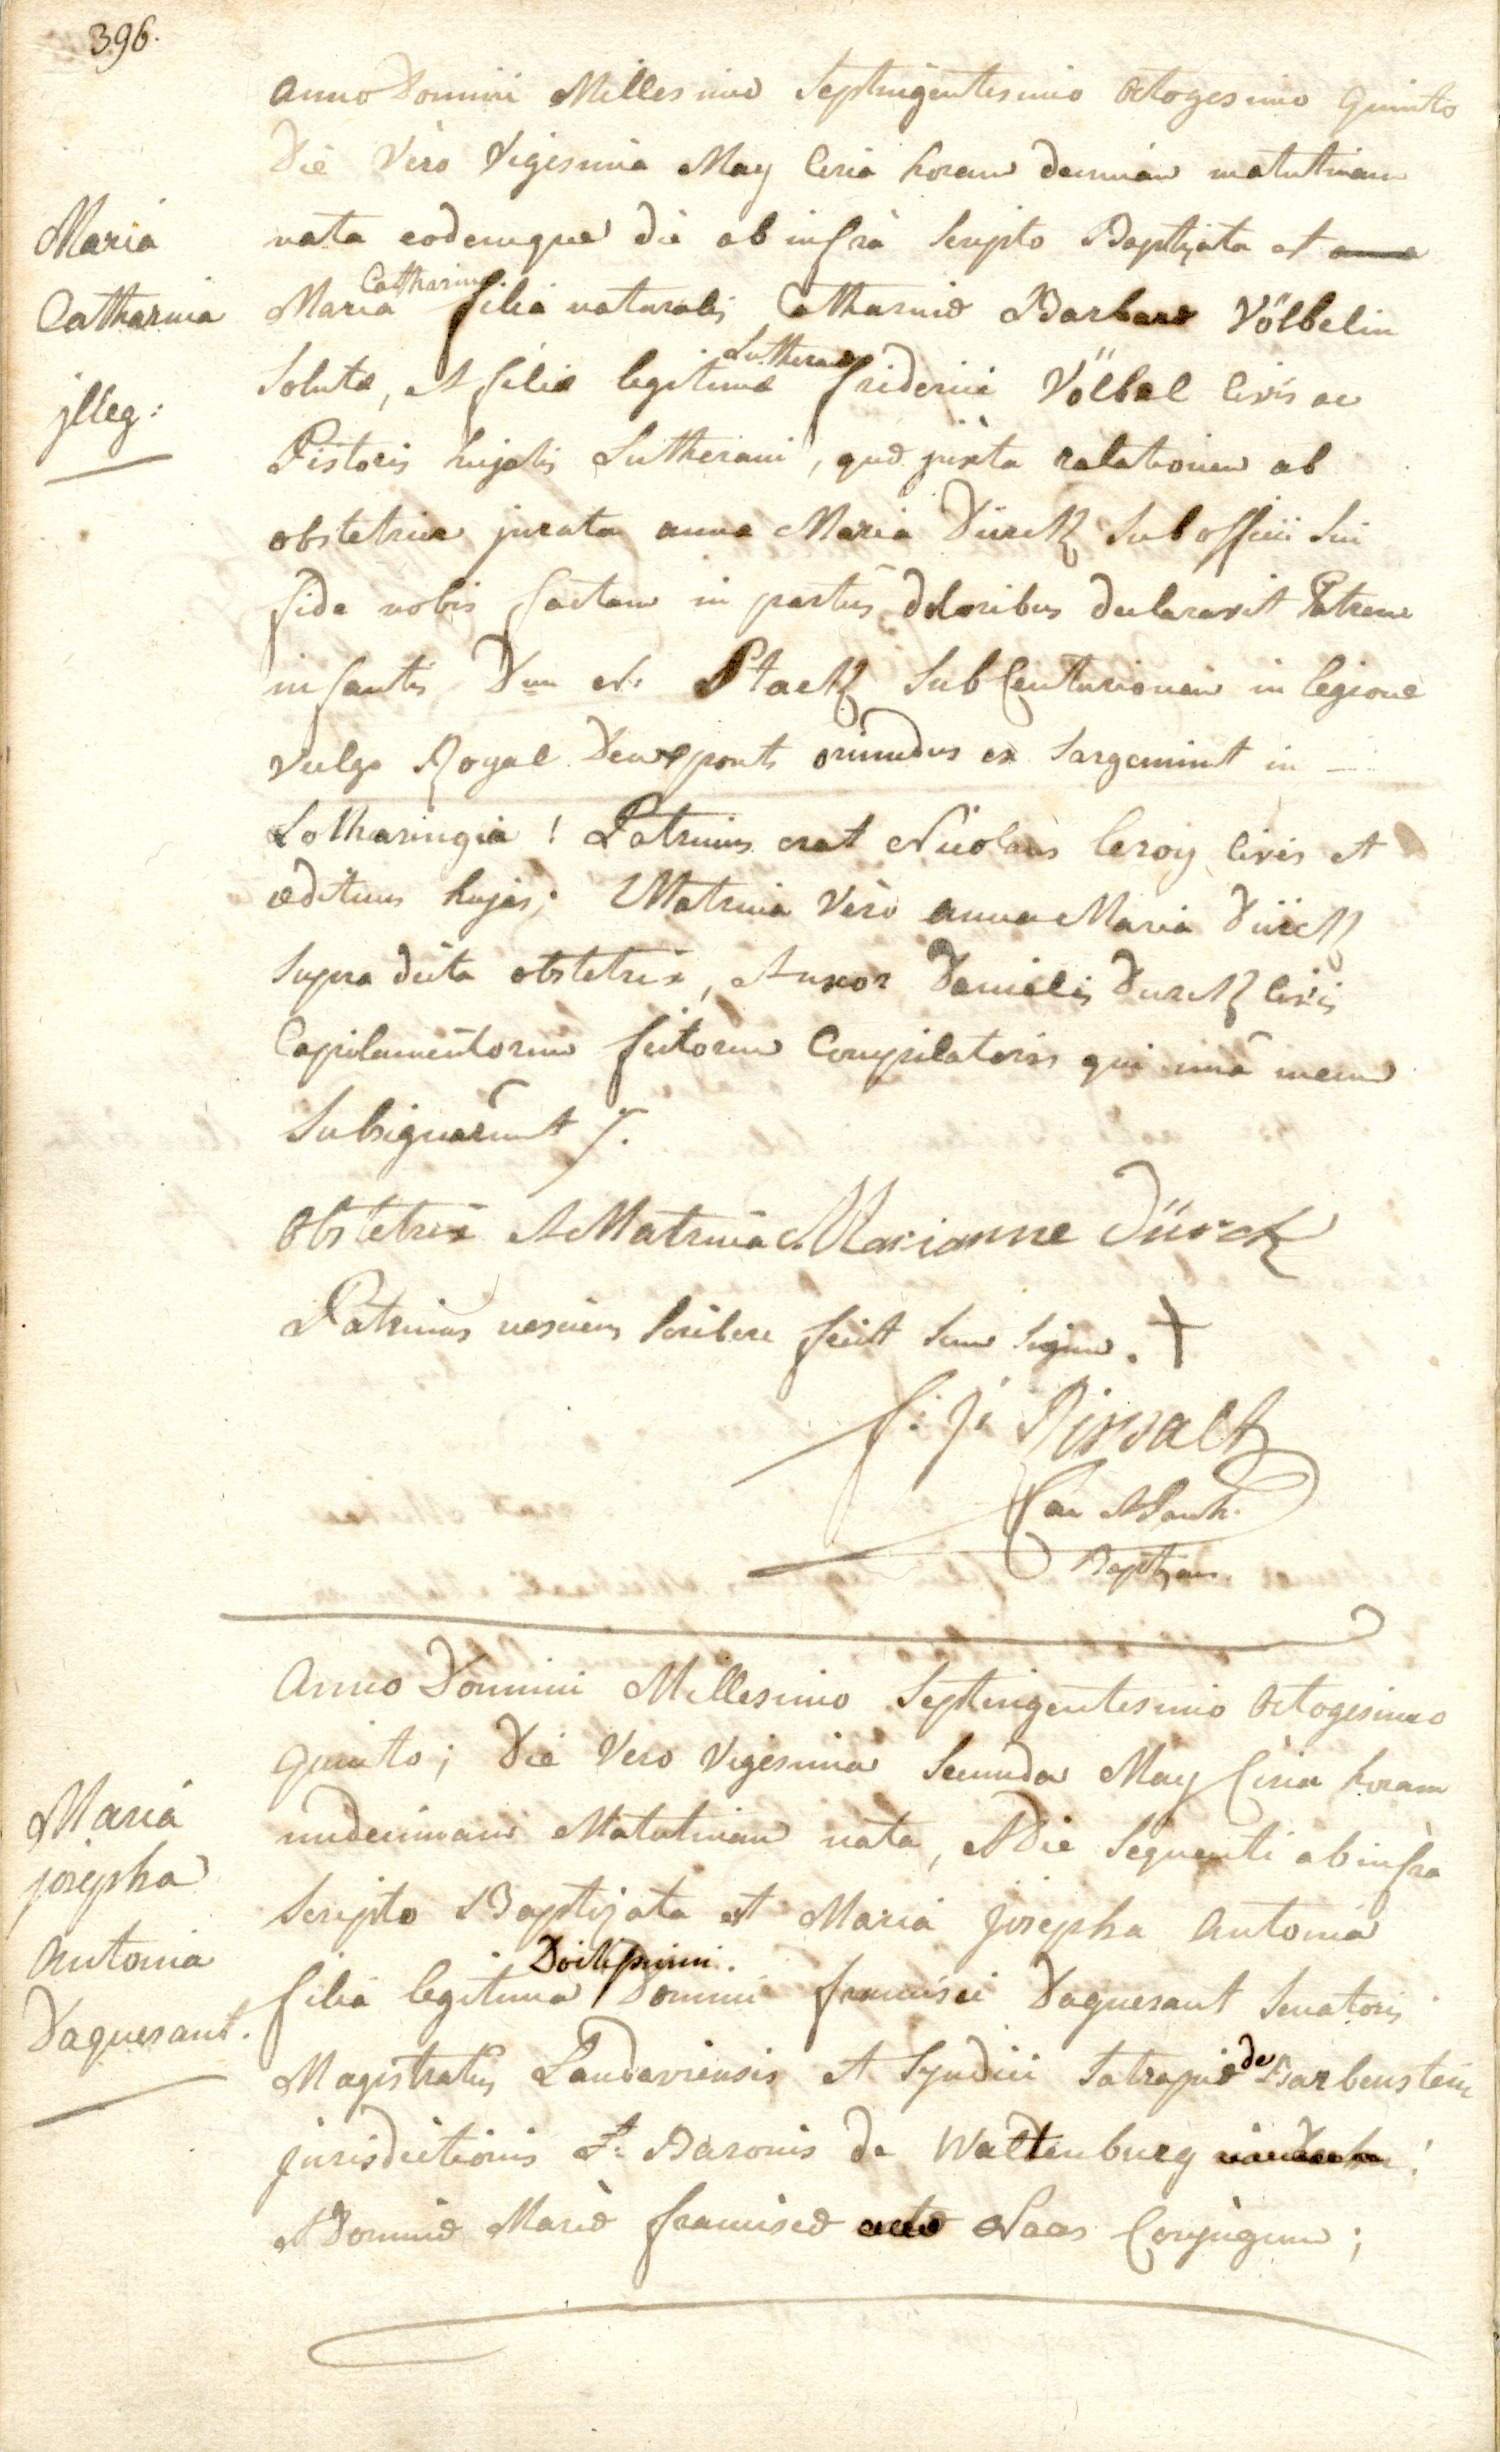 396.
Anno Domini Millesimo Septingentesimo Octogesimo Quinto
Die Vèro Vigesima May Circa horam decimam matutinam
nata eodemque die ab infra Scripto Baptizata est
Maria
Catharina
Maria Catharina filia naturalis Catharinæ Barbaræ Völbelin
Solutæ, et filiæ legitimæ Lutheranæ Friderici Völbel Civis ac
jlleg:
Pistoris hujatis Lutherani, quæ juxta relationem ab
obstetrice jurata anna Maria Dürck Sub officii Sui
fide nobis factam in partus doloribus declaravit Patrem
infantis Dnum N: Stack SubCenturionem in legione
vulgo Royal Deuxponts oriundus ex Sargemint in
Lotharingia! Patrinus erat Nicolaus Ceroy Civis et
ædituus hujas; Matrina Vèro anna Maria Dürck
Supra dicta obstetrix, et uxor Danielis Dürck Civis
Capilamentorum fictorum Compilatoris qui unà mecum
Subsignarunt /.
Obstetrix et Matrina Marianne Dürck
Patrinus nesciens Scribere fecit Suum Signum. +
f: J:
Can
Baptizans.
Anno Domini Millesimo Septingentesimo Octogesimo
Quinto; Die Vero Vigesima Secunda May Circa horam
undecimam Matutinam nata, et Die Sequenti ab infra
Maria
josepha
Antonia
Daquesant.
Scripto Baptizata est Maria Josepha Antonia
filia legitima Domini francisci Daquesant Senatoris
Magistratus Landaviensis et Syndici Satrapiæ de Barbenstein
jurisdictionis L: Baronis de Waltenburg
et Dominæ Mariæ franciscæ Naas Conjugum;